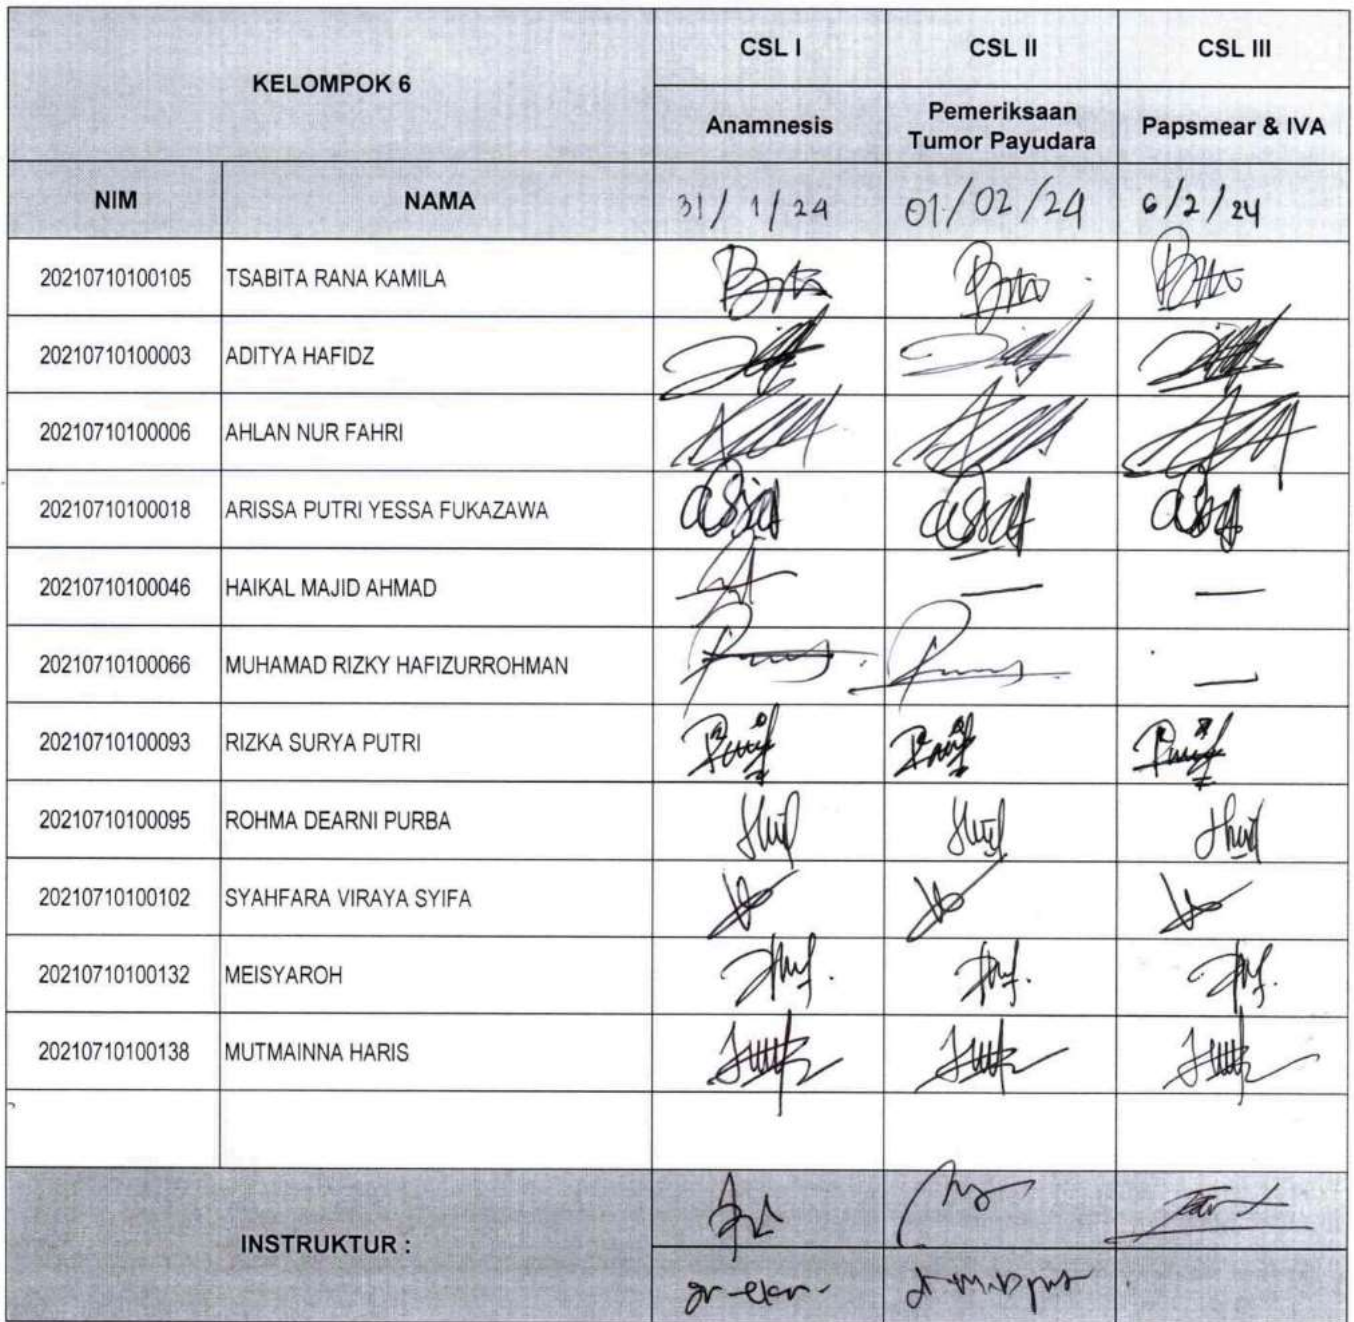 KELOMPOK 6
CSL I
CSL II
CSL III
Anamnesis
Pemeriksaan
Tumor Payudara
Papsmear & IVA
NIM
NAMA
31/1/24
01/02/24
6/2/24
20210710100105 TSABITA RANA KAMILA
20210710100003 ADITYA HAFIDZ
20210710100006 AHLAN NUR FAHRI
20210710100018 ARISSA PUTRI YESSA FUKAZAWA
20210710100046 HAIKAL MAJID AHMAD — —
20210710100066 MUHAMAD RIZKY HAFIZURROHMAN —
20210710100093 RIZKA SURYA PUTRI
20210710100095 ROHMA DEARNI PURBA
20210710100102 SYAHFARA VIRAYA SYIFA
20210710100132 MEISYAROH
20210710100138 MUTMAINNA HARIS
INSTRUKTUR :